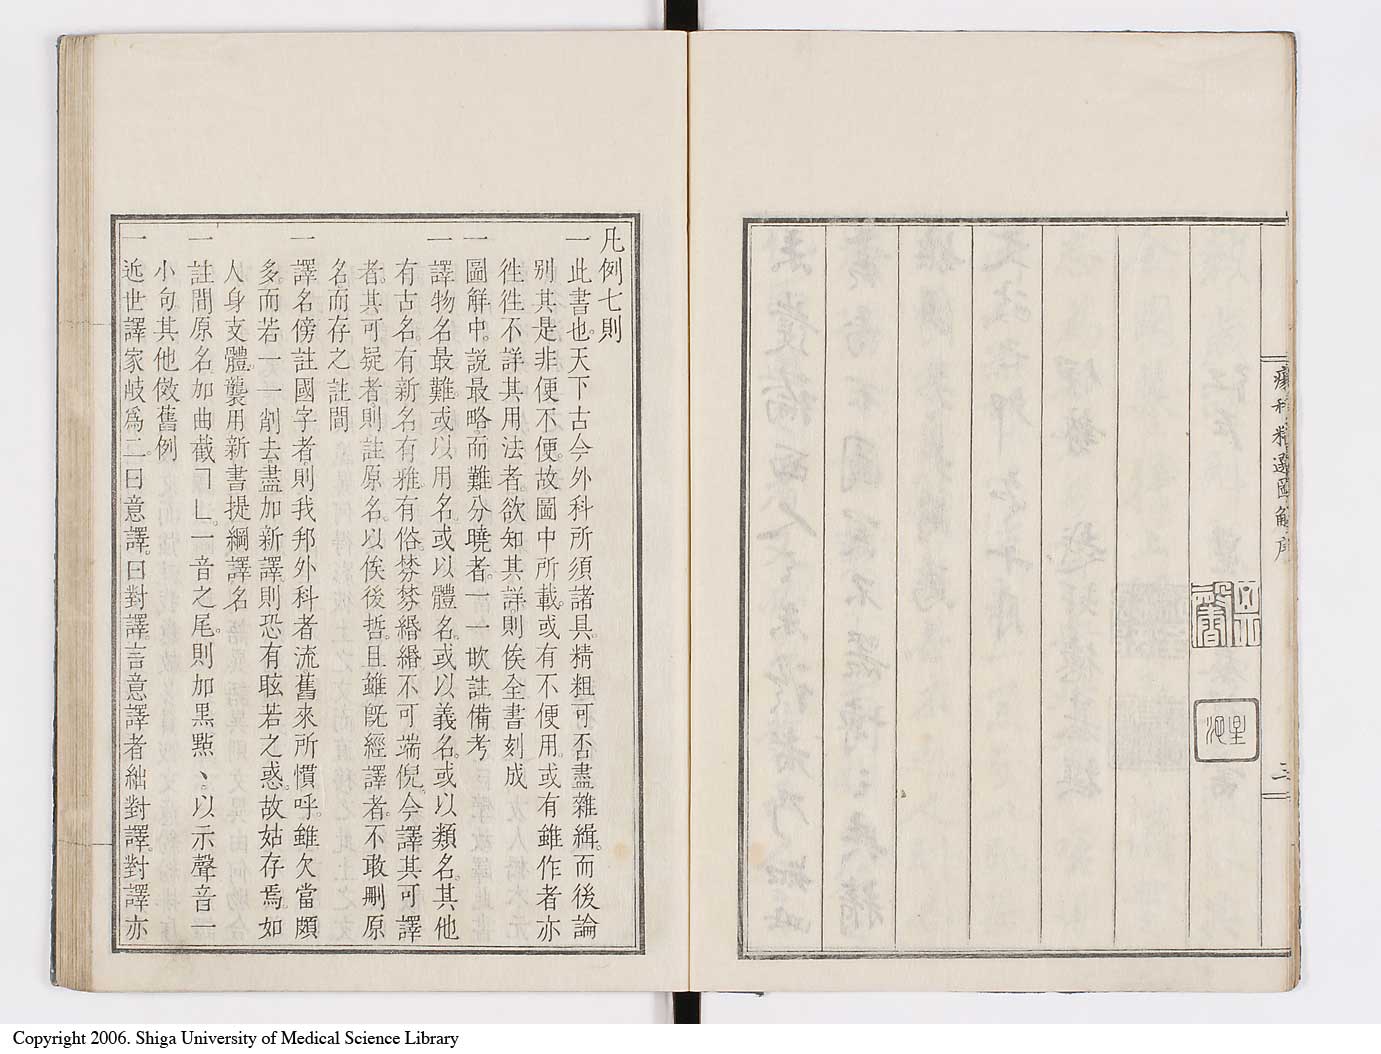 瘍科精選圖解序
三
凡例七則
一此書也。天下古今外科所須諸具。精粗可否盡雜緝。而後論
別其是非便不便。故圖中所載。或有不便用。或有雖作者亦
徃徃不詳其用法者。欲知其詳則俟全書刻成
一圖解中。説最略。而難分曉者。一一㰸註備考
一譯物名最難。或以用名。或以體名。或以義名。或以類名。其他
有古名。有新名有雅。有俗。棼棼緡緡不可端倪。今譯其可譯
者。其可疑者則註原名。以俟後哲。且雖既經譯者。不敢刪原
名而存之註間
一譯名傍註國字者。則我邦外科者流舊來所慣呼。雖欠當頗
多。而若一一削去。盡加新譯。則恐有眩若之惑。故姑存焉。如
人身支體襲用新書提綱譯名
一註間原名加曲截﹁﹂一音之尾。則加黒㸃、以示聲音一
小句其他倣舊例
一近世譯家岐爲二。曰意譯。曰對譯。言意譯者絀對譯。對譯亦
Copyright 2006. Shiga University of Medical Science Library